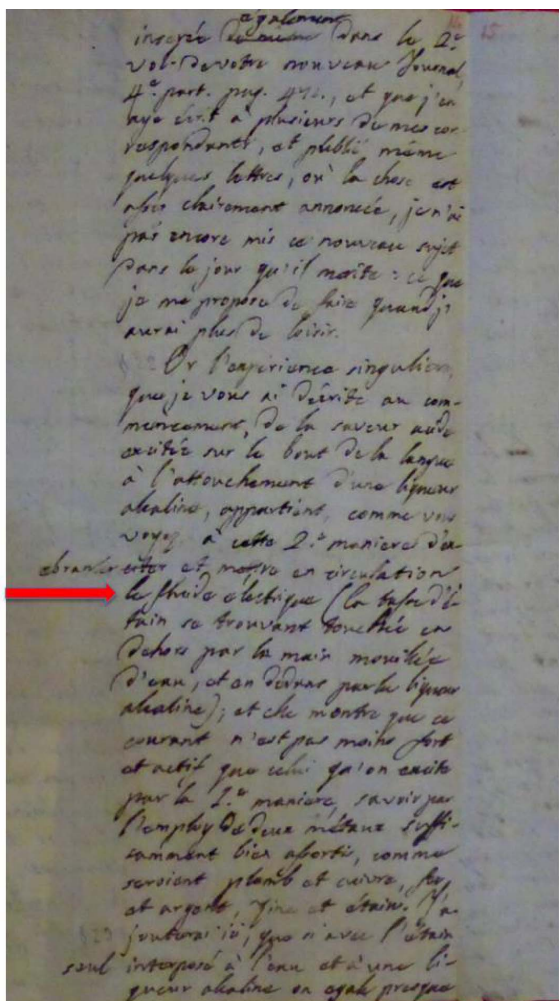 également
insérée de même dans le 2.e
vol. de votre nouveau Journal,
4.e part. pag. 472., et que j'en
aye écrit à plusieurs de mes cor-
respondants, et publié même
quelques lettres, où la chose est
assés clairement annoncée, je n'ai
pas encore mis ce nouveau sujet
dans le jour qu'il mérite: ce que
je me propose de faire quand j'
aurai plus de loisir.
Or l'expérience singuliere,
que je vous ai décrite au com-
mencement, de la saveur acide
excitée sur le bout de la langue
à l'attouchement d'une liqueur
alkaline, appartient, comme vous
voyez, à cette 2.e maniere d'ex-
ebranler citer et mettre en circulation
le fluide électrique (la tasse d'é-
tain se trouvant touchée en
dehors par la main mouillée
d'eau, et en dedans par la liqueur
alkaline); et elle montre que ce
courant n'est pas moins fort
et actif que celui qu'on excite
par la 1.e maniere, savoir par
l'employ de deux métaux suffi-
samment bien assortis, comme
seroient plomb et cuivre, fer
et argent, zinc et étain. J'a-
jouterai ici, que si avec l'étain
seul interposé à l'eau et à une li-
queur alkaline on egale presque